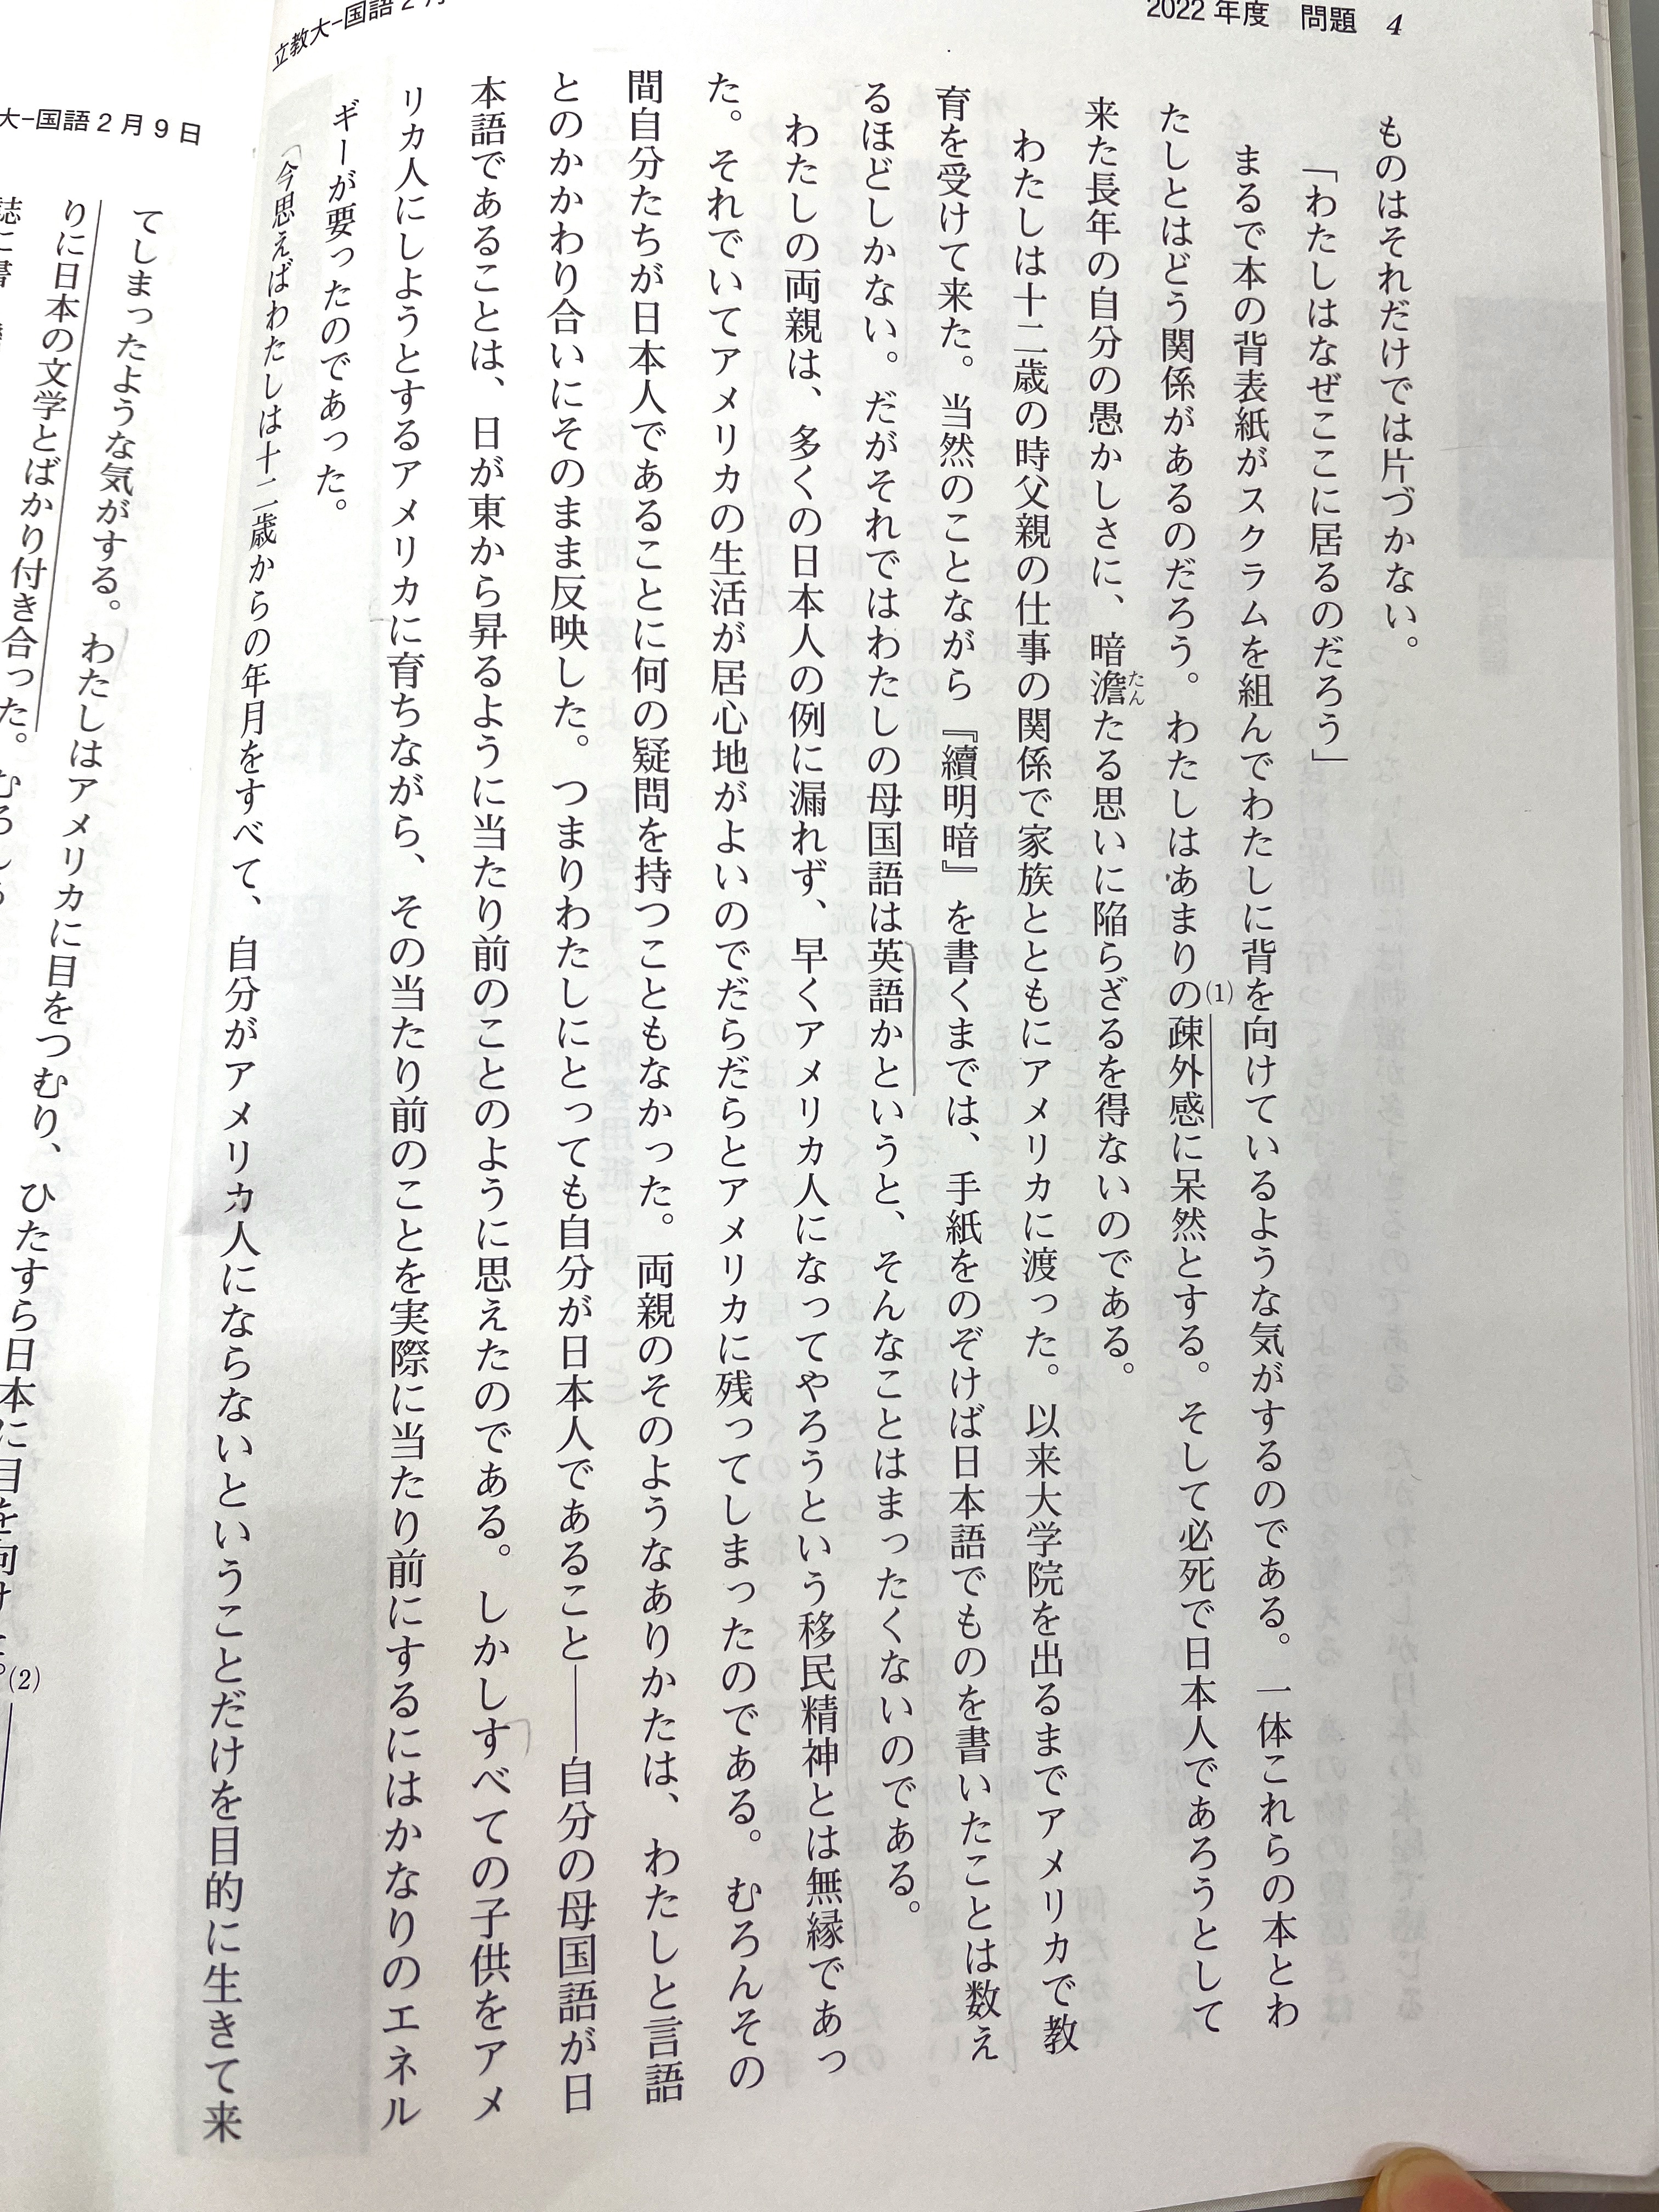 2022年度 問題 4
立教大-国語2月
ものはそれだけでは片づかない。
「わたしはなぜここに居るのだろう」
まるで本の背表紙がスクラムを組んでわたしに背を向けているような気がするのである。一体これらの本とわ
たしとはどう関係があるのだろう。わたしはあまりの(1)疎外感に呆然とする。そして必死で日本人であろうとして
来た長年の自分の愚かしさに、暗澹たんたる思いに陥らざるを得ないのである。
わたしは十二歳の時父親の仕事の関係で家族とともにアメリカに渡った。以来大学院を出るまでアメリカで教
育を受けて来た。当然のことながら『續明暗』を書くまでは、手紙をのぞけば日本語でものを書いたことは数え
るほどしかない。だがそれではわたしの母国語は英語かというと、そんなことはまったくないのである。
わたしの両親は、多くの日本人の例に漏れず、早くアメリカ人になってやろうという移民精神とは無縁であっ
た。それでいてアメリカの生活が居心地がよいのでだらだらとアメリカに残ってしまったのである。むろんその
間自分たちが日本人であることに何の疑問を持つこともなかった。両親のそのようなありかたは、わたしと言語
とのかかわり合いにそのまま反映した。つまりわたしにとっても自分が日本人であること――自分の母国語が日
本語であることは、日が東から昇るように当たり前のことのように思えたのである。しかしすべての子供をアメ
リカ人にしようとするアメリカに育ちながら、その当たり前のことを実際に当たり前にするにはかなりのエネル
ギーが要ったのであった。
今思えばわたしは十二歳からの年月をすべて、自分がアメリカ人にならないということだけを目的に生きて来
大-国語2月9日
てしまったような気がする。わたしはアメリカに目をつむり、ひたすら日本に目を向けた。(2)
りに日本の文学とばかり付き合った。